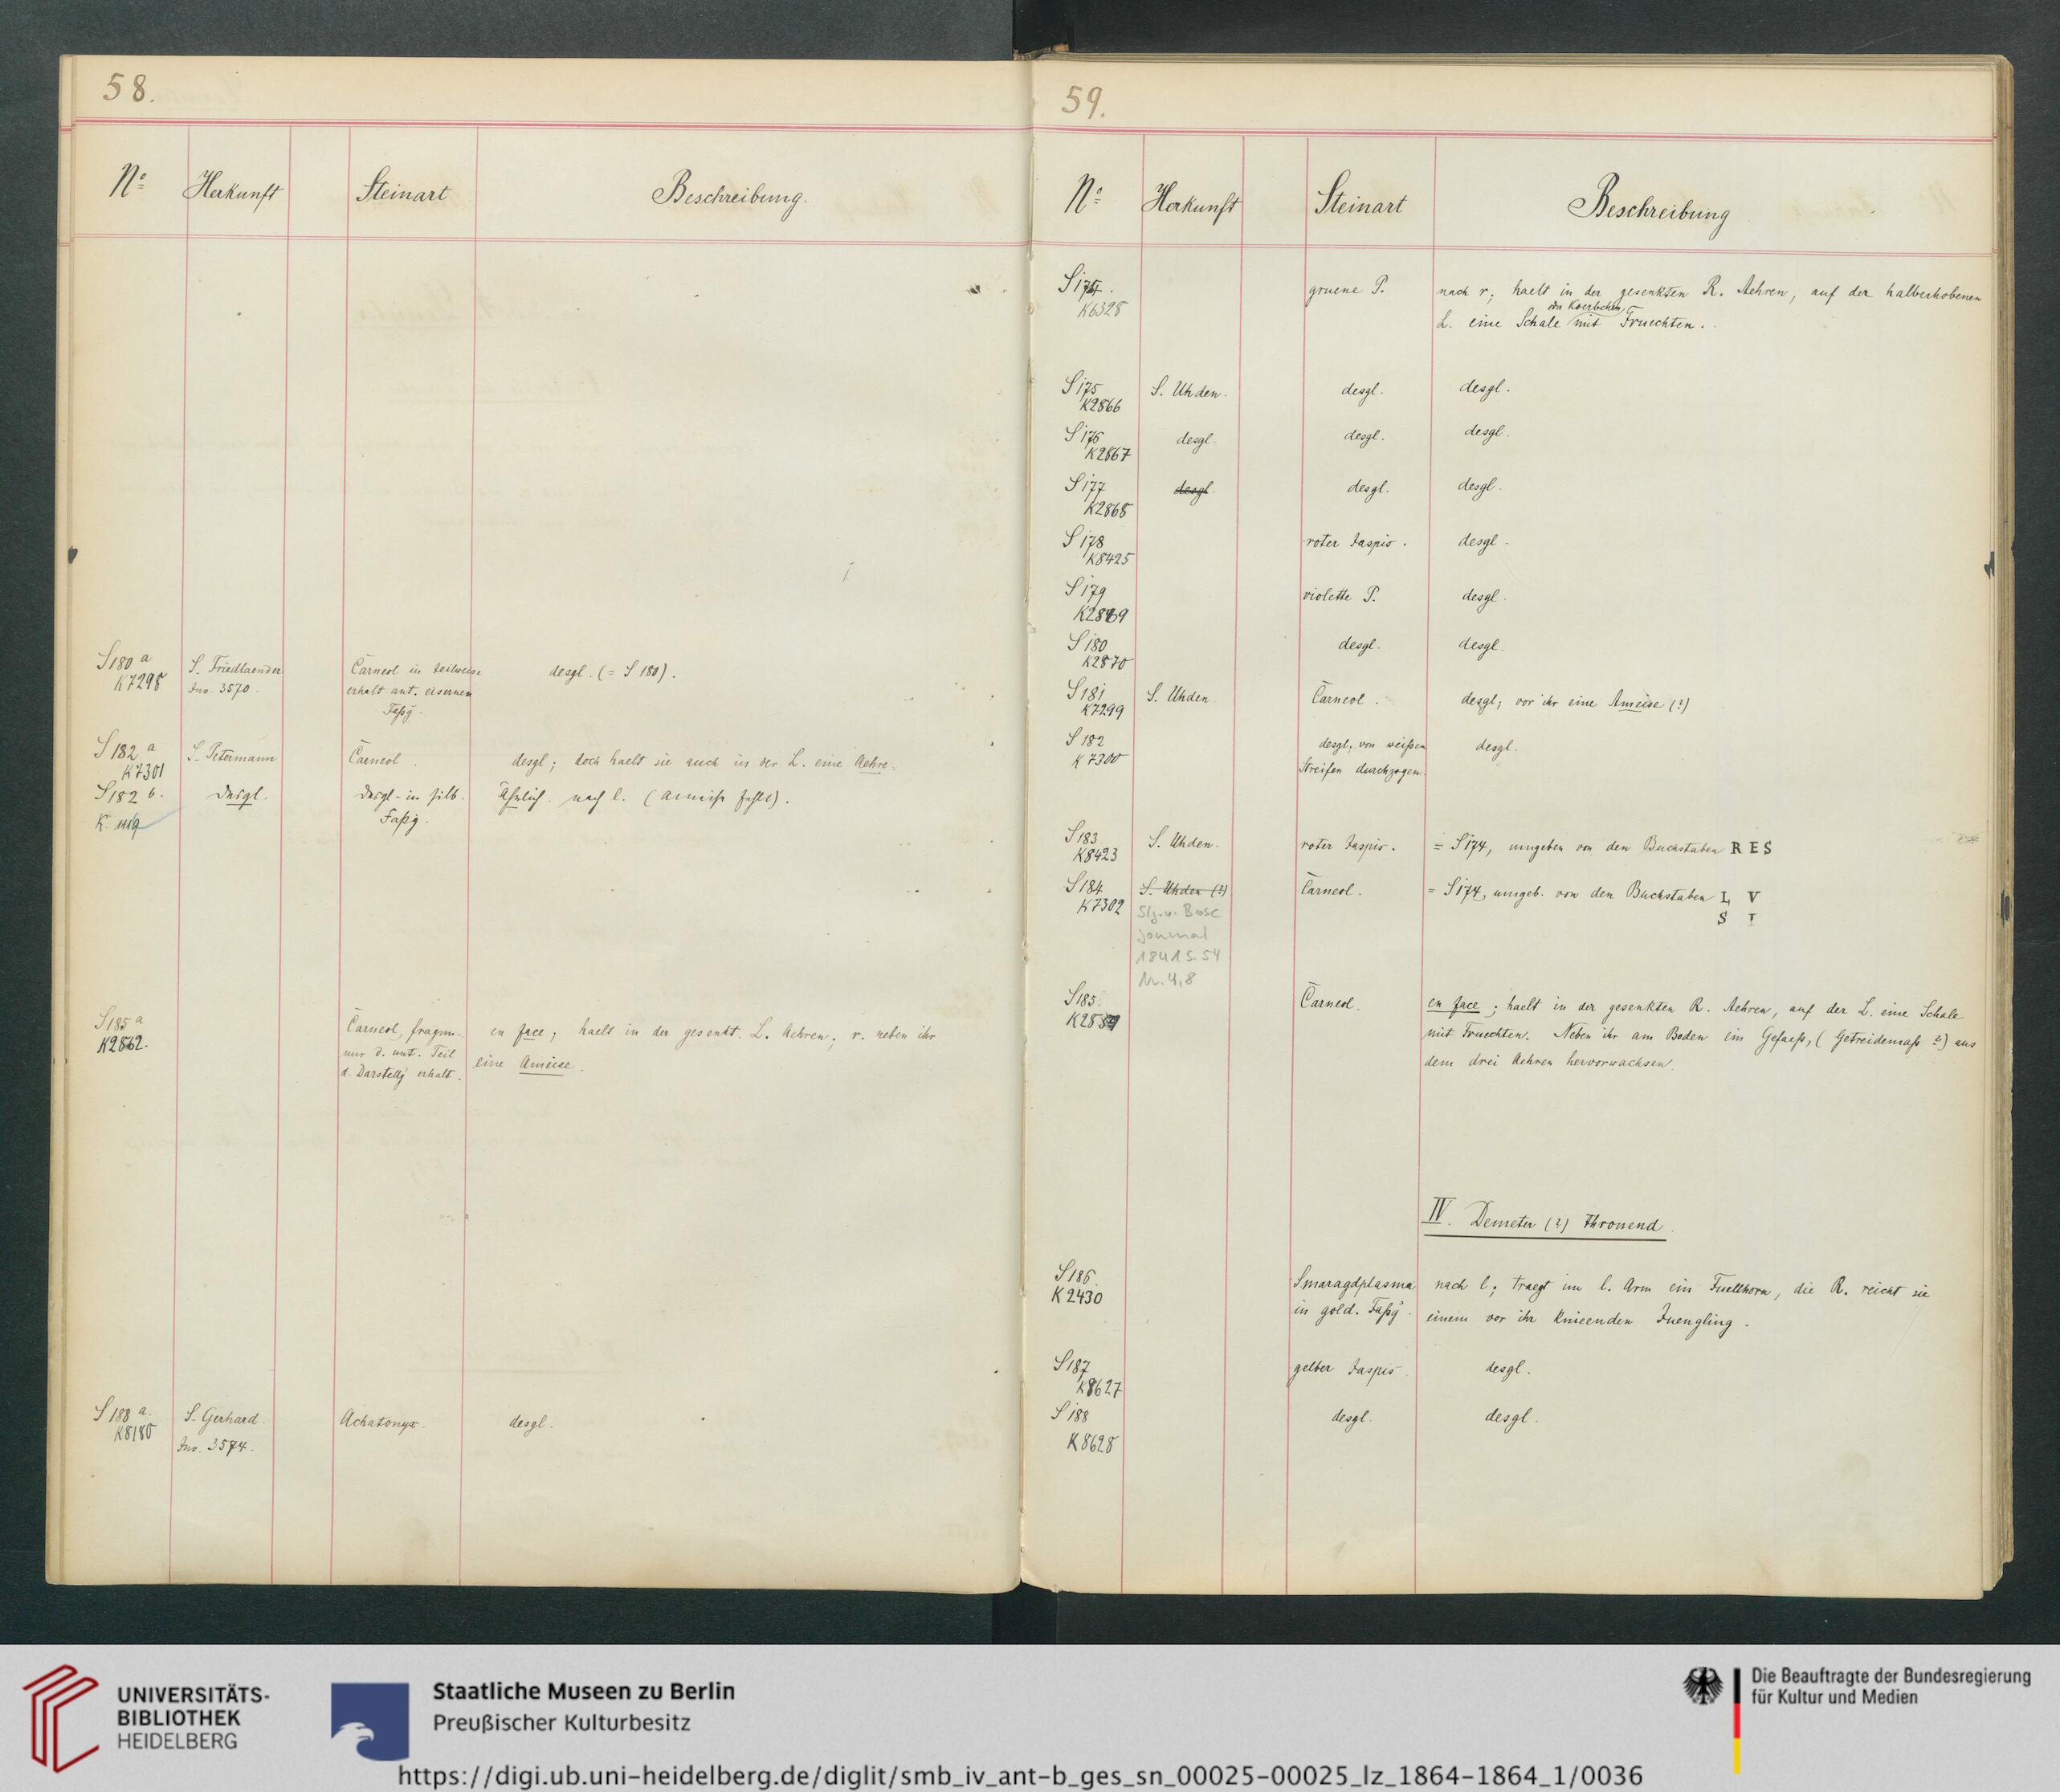 58.
Nº Herkunft Steinart Beschreibung.
S 180 a S. Friedlaender Carneol in teilweise desgl. (= S 180).
K7298 Inv. 3570. erhalt. ant. eisernen
Faßg.
S 182 a S. Petermann Carneol. desgl; doch haelt sie auch in der L. eine Aehre.
K7301
S 182 b. desgl. desgl. in silb. Ähnlich. nach l. (Ameise fehlt).
K. Faßg.
S 185 a Carneol, fragm. en face; haelt in der gesenkt. L. Aehren; r. neben ihr
K2862. nur d. unt. Teil eine Ameise.
d. Darstellg erhalt.
S 188 a. S. Gerhard Achatonyx. desgl.
K8180 Inv. 3574.
59.
Nº Herkunft Steinart Beschreibung
S 174. gruene P. nach r; haelt in der gesenkten R. Aehren, auf der halberhobenen
K6328 L. eine Schale mit Fruechten.
S 175 S. Uhden. desgl. desgl.
K2866
S 176 desgl. desgl. desgl.
K2867
S 177 desgl. desgl. desgl.
K2868
S 178 roter Jaspis. desgl.
K8425
S 179 violette P. desgl.
K2869
S 180 desgl. desgl.
K2870
S 181 S. Uhden Carneol. desgl; vor ihr eine Ameise (?)
K7299
S 182 desgl; von weißen desgl.
K7300 Streifen durchzogen.
S 183 S. Uhden. roter Jaspis. = S 174, umgeben von den Buchstaben R E S
K8423
S 184 S. Uhden (?) Carneol. = S 174, umgeb. von den Buchstaben L V
K7302 Slg. v. Bosc S I
Journal
1841 S. 54
Nr. 4,8
S 185. Carneol. en face; haelt in der gesenkten R. Aehren, auf der L. eine Schale
mit Fruechten. Neben ihr am Boden ein Gefaeß, (Getreidemaß?) aus
dem drei Aehren hervorwachsen.
IV. Demeter (?) thronend.
S 186. Smaragdplasma nach l; traegt im l. Arm ein Fuellhorn, die R. reicht sie
K2430 in gold. Faßg. einem vor ihr knieenden Juengling.
S 187 gelber Jaspis desgl.
K8627
S 188 desgl. desgl.
K8628
UNIVERSITÄTS-
BIBLIOTHEK
HEIDELBERG
Staatliche Museen zu Berlin
Preußischer Kulturbesitz
Die Beauftragte der Bundesregierung
für Kultur und Medien
https://digi.ub.uni-heidelberg.de/diglit/smb_iv_ant-b_ges_sn_00025-00025_lz_1864-1864_1/0036